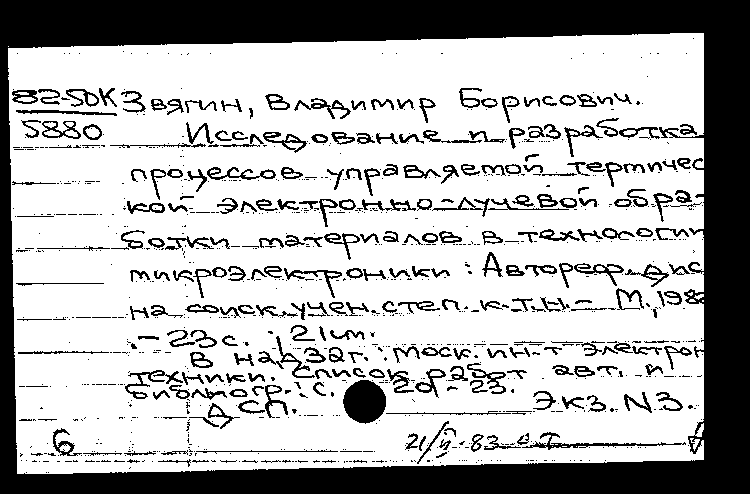 82-50К Звягин, Владимир Борисович.
5880 Исследование и разработка
процессов управляемой термичес
кой электронно-лучевой обра-
ботки материалов в технологии
микроэлектроники : Автореф. дис
на соиск. учен. степ. к.т.н. - М., 198
.- 23 с. ; 21 см.
В надзаг. : Моск. ин-т электрон
техники. Список работ авт. и
библиогр. : с. 20 - 23.
ДСП. Экз. N3.
6 21/II-83